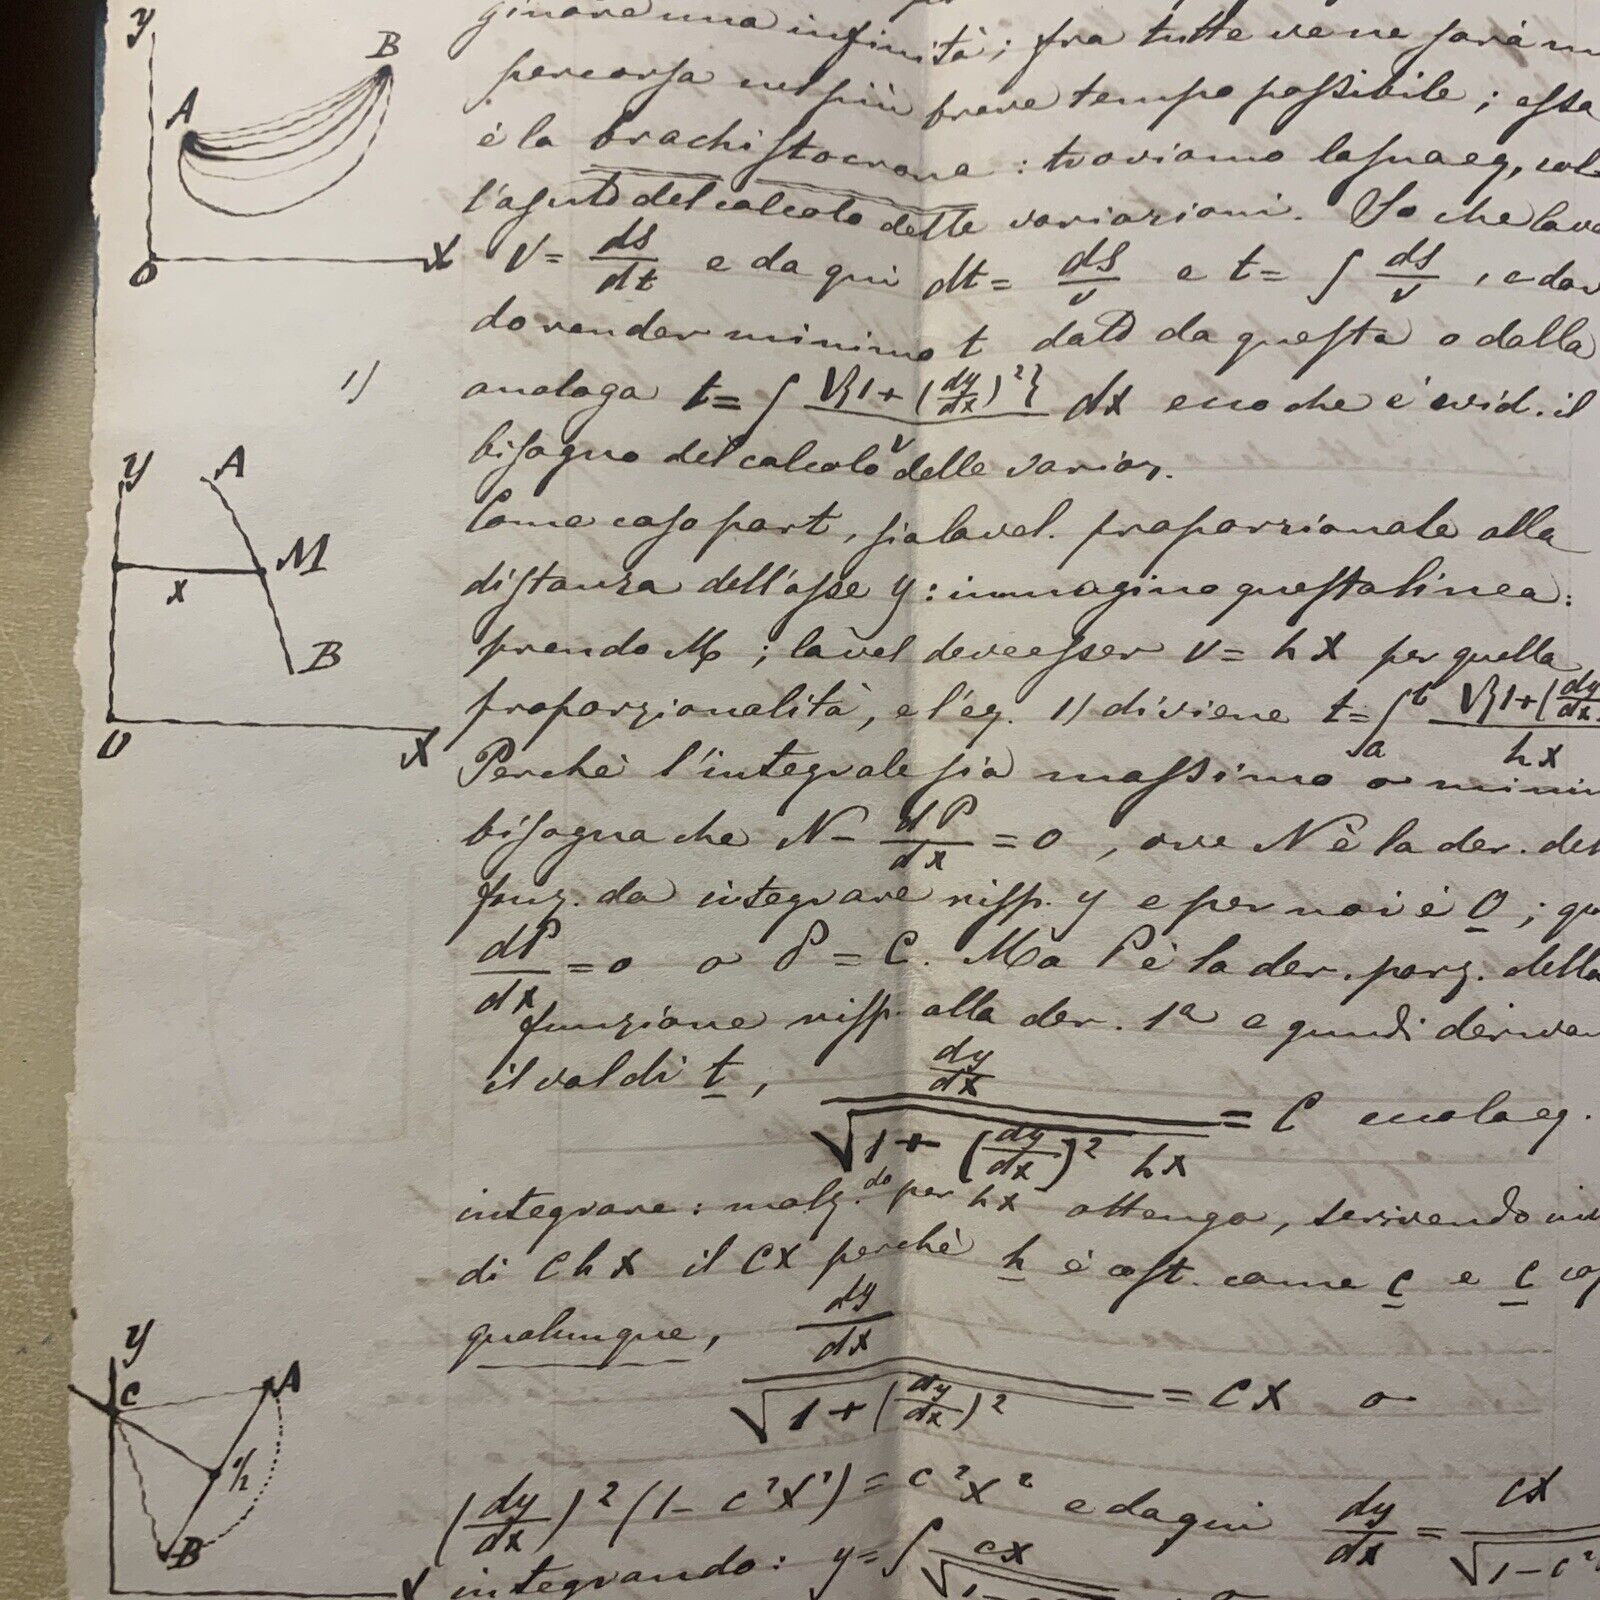 ginare una infinità; fra tutte ve ne sarà
percorsa nel più breve tempo possibile; essa
è la brachistocrona: troviamo la sua eq, col
l'ajuto del calcolo delle variazioni. So che la
V = ds/dt e da qui dt = ds/v e t = ∫ ds/v , e
do render minimo t dato da questa o dalla
1) analoga t = ∫ √{1 + (dy/dx)²} / v dx che è evid. il
bisogno del calcolo delle varioz.
Come caso part, sia la vel. proporzionale alla
distanza dell'asse y: immagino questa linea:
prendo M; la vel deve esser v = hx per quella
proporzionalità, e l'eq. 1) diviene t = ∫ₐᵇ √{1 + (dy/dx / hx
Perchè l'integrale sia massimo o
bisogna che N - dP/dx = 0 , ove N è la der. del
funz. da integrare risp. y e per noi è 0 ;
dP/dx = 0 o P = C. Ma P è la der. parz. della
funzione risp. alla der. 1ª e quindi
il val di t, dy/dx / √1 + (dy/dx)² hx = C eq.
integrare: per hx ottengo, scrivendo
di Chx il Cx perchè h è cost. come c e c
qualunque, dy/dx / √1 + (dy/dx)² = Cx o
(dy/dx)² (1 - c²x²) = c²x² e da qui dy/dx = cx / √1 - c²
integrando: y = ∫ cx / √1
y
B
A
O
X
y
A
M
x
B
O
X
y
C
A
1/2
B
X